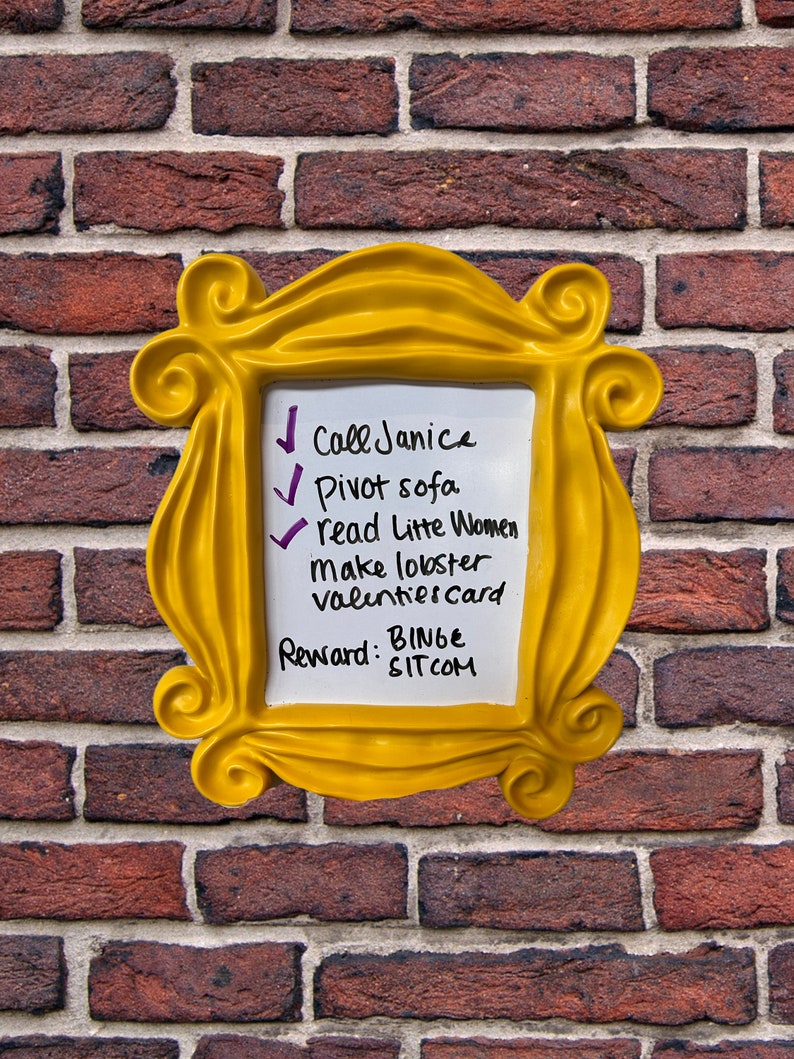 ✓ Call Janice
✓ pivot sofa
✓ read Litte Women
make lobster
valenties card
Reward: BINGE
SITCOM